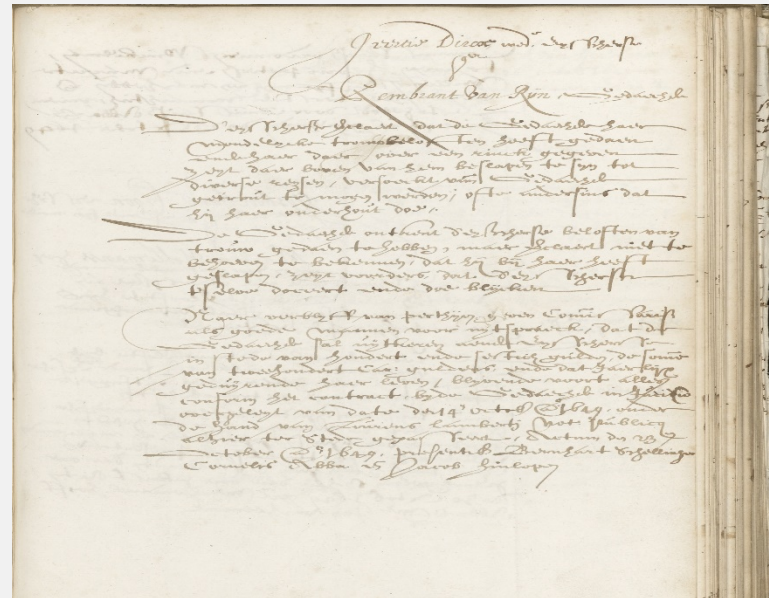 Geertie Dircx wed.e Eysschersse
Contra
Rembrant Van Rijn, Gedaechde
D'Eysschersse verclaert dat de Gedaechde haer
mondelycke trouwbeloften heeft gedaen
ende haer daer over een rinck gegeven
zeyt daer boven van hem beslapen te zyn tot
diverse reysen, versoeckt van Gedaechde
getrout te mogen werden, ofte andersins dat
hij haer onderhout doe.
De Gedaechde ontkent d'Eysschersse beloften van
trouw gedaen te hebben, maer verclaert niet te
behoeven te bekennen, dat hij bij haer heeft
geslapen, zeyt voorders dat d'Eysschersse
tselve doceert ende doe blycken
Naer verblyff van perthijen, aen Comms.
als goede mannen voor uytspraeck, dat de
Gedaechde sal uytkeren aende Eysschersse
in stede van hondert ende sestich gulden, de somme
van tweehondert Car: guldens ende dat jaerlyx
gedurende haer leven, blyvende voort alles
conform het contract, by de Gedaechde in Judicio
overgelegt van date den 14 octob. Ao 1649. onder
de hand van Laurens Lamberti Not Publicq
alhier ter Stede, Actum den 23
October Ao 1649, presentib Bernhart Schellinger
Cornelis Abba & Jacob Hinlopen